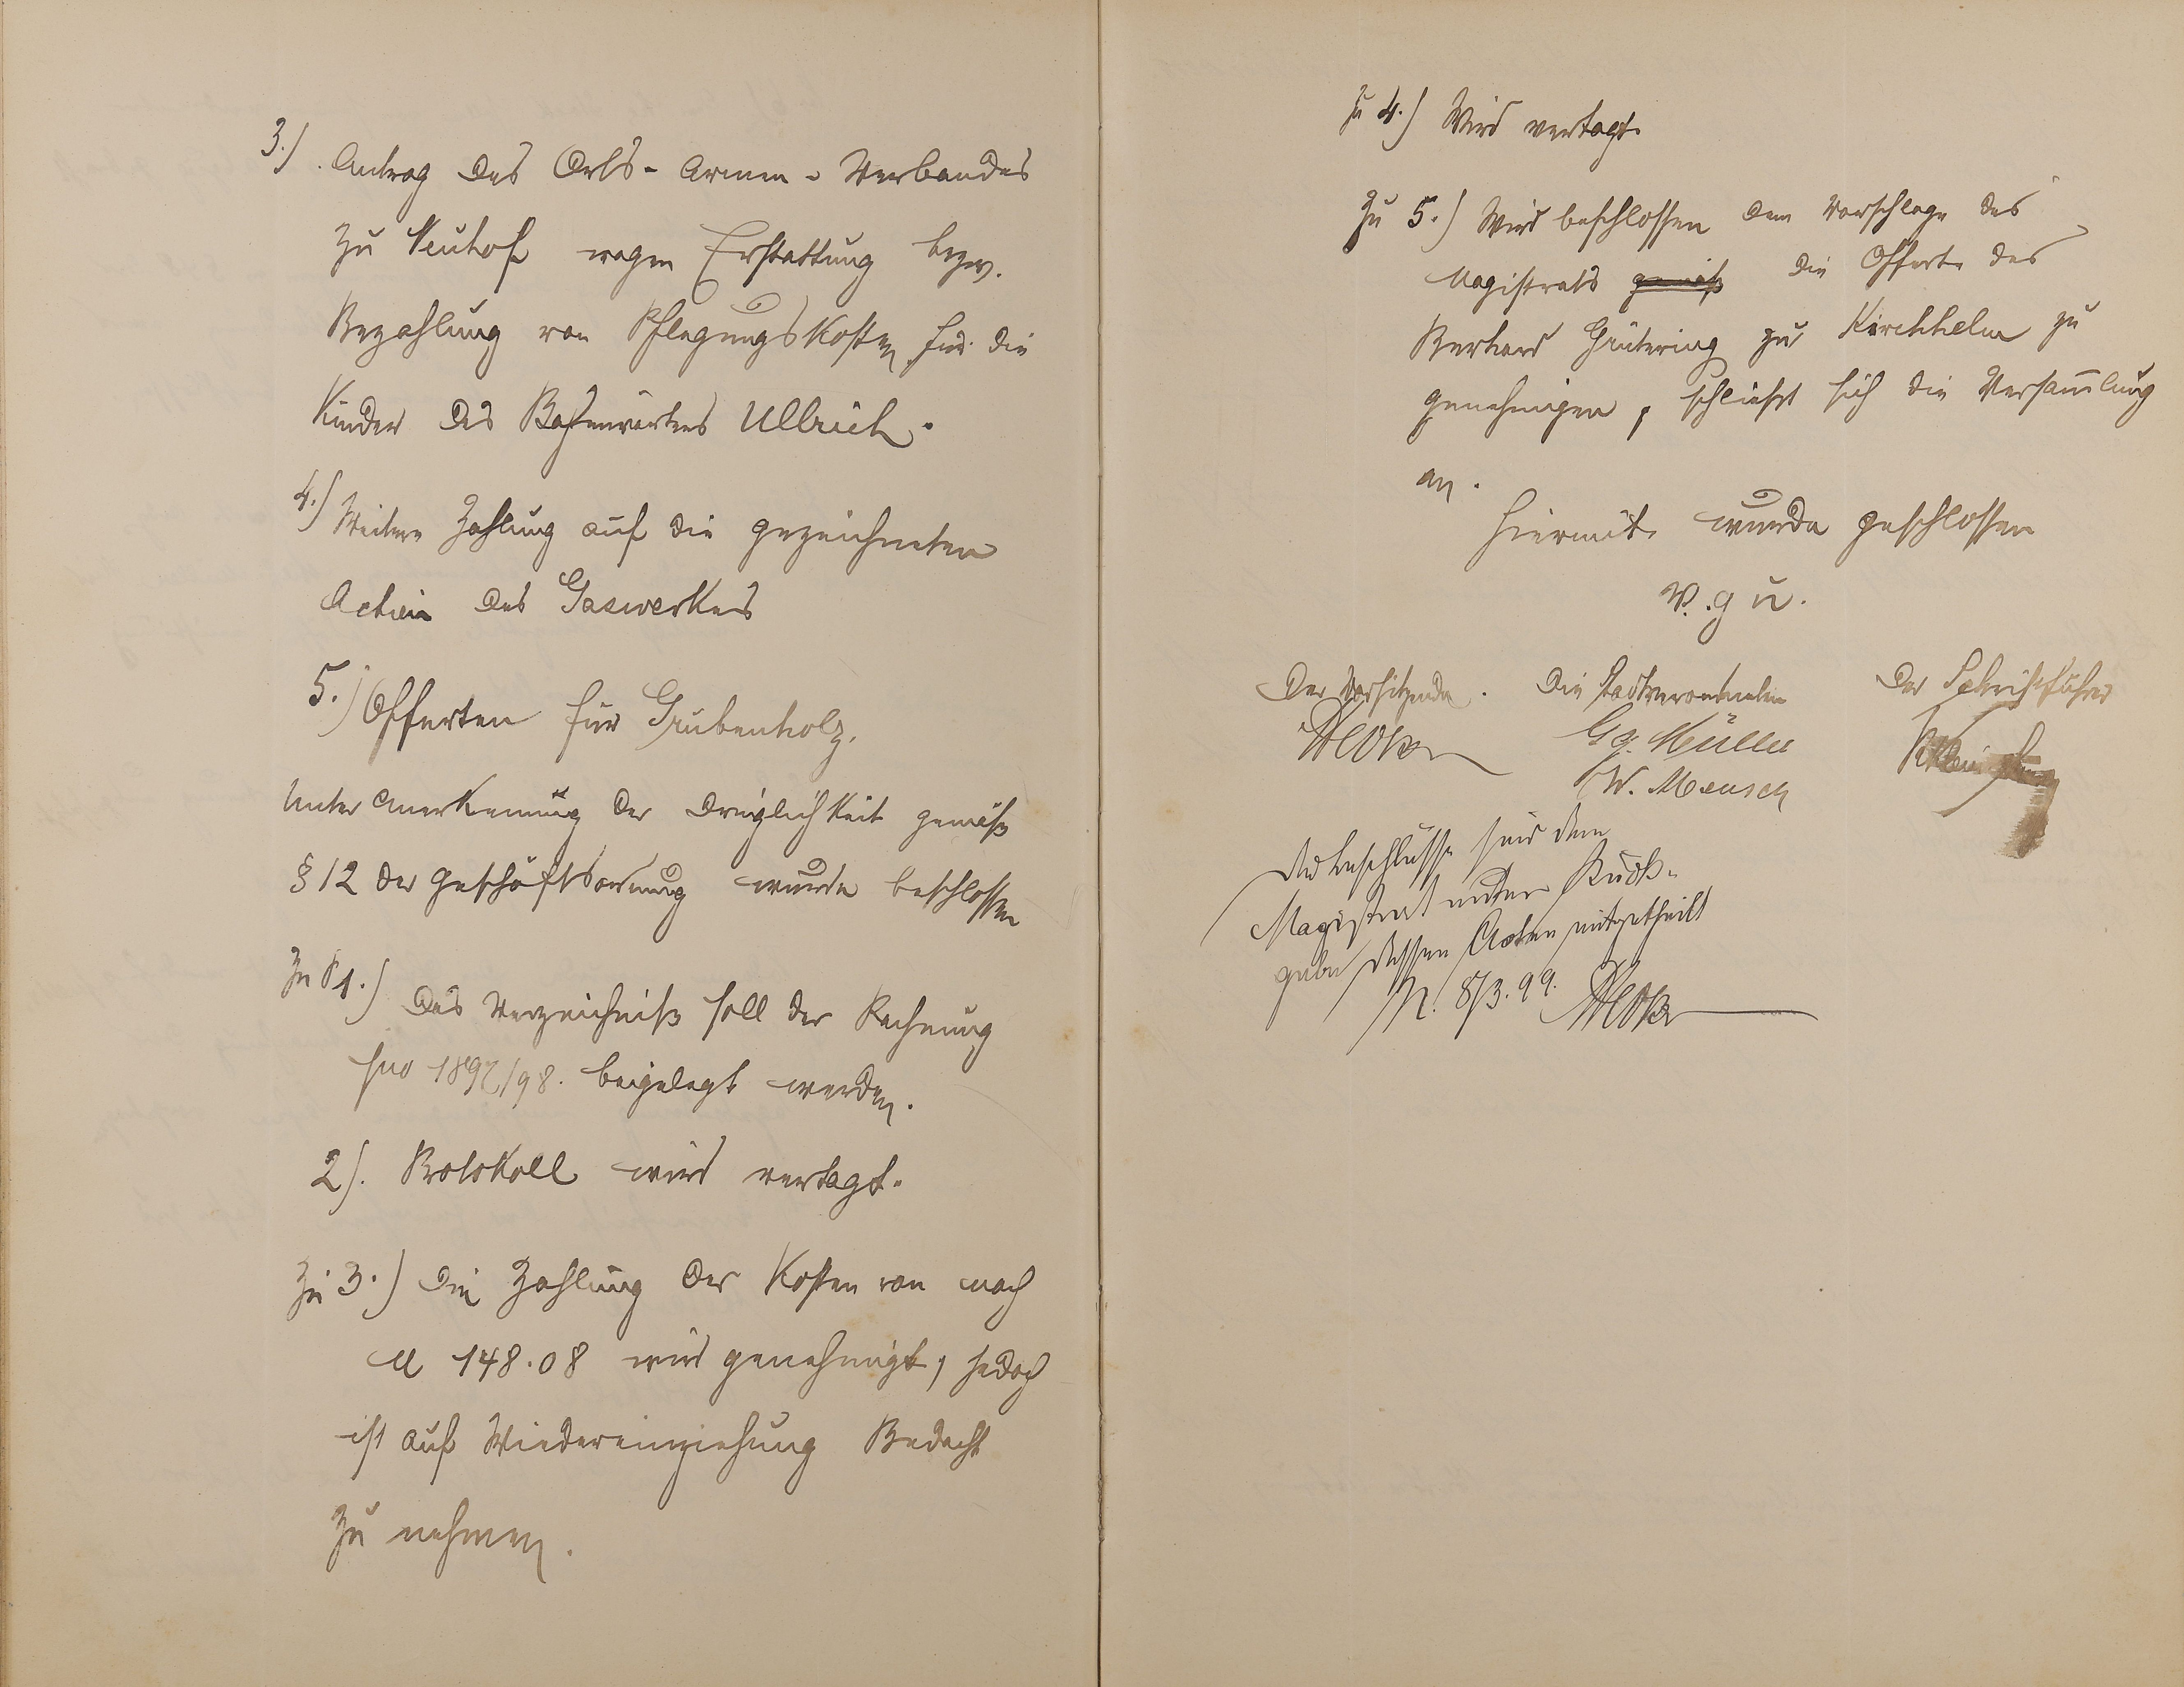 3.) Antrag des Orts-Armen-Verbandes
zu Neuhof wegen Erstattung bezw.
Bezahlung von Pflegungskosten für die
Kinder des Bahnwärters Ullrich.
4.) Weitere Zahlung auf die gezeichneten
Actien des Gaswerkes
5.) Offerten für Grubenholz.
Unter Anerkennung der Dringlichkeit gemäß
§ 12 der Geschäftsordnung wurde beschlossen
Zu 1.) Das Verzeichniß soll der Rechnung
pro 1897/98. beigelegt werden.
2). Protokoll wird vertagt.
Zu 3.) Die Zahlung der Kosten von noch
M 148.08 wird genehmigt, jedoch
ist auf Wiedereinziehung Bedacht
zu nehmen.
Zu 4.) Wird vertagt.
Zu 5.) Wird beschlossen dem Vorschlage des
Magistrats gemäß die Offerte des
Gütering zu Kirchhelm zu
genehmigen, schließt sich die Versammlung
an.
Hiermit wurde geschlossen
v. g u.
Der Vorsitzende. Die Stadtverordneten Der Schriftführer
Gg. Müller
W. Mensch
Die Beschlüsse sind dem
Magistrat unter Rück-
gabe dessen Acten mitgetheilt
N. 8/3.99.